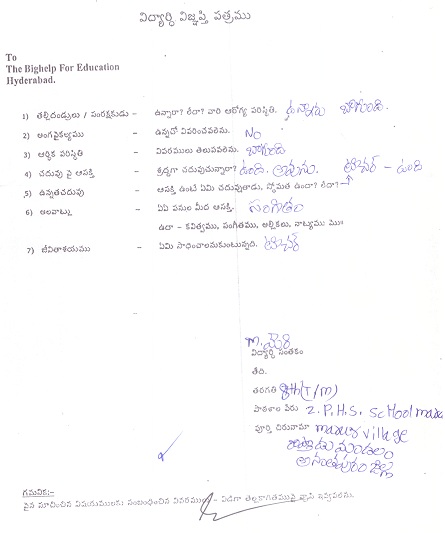 విద్యార్థి విజ్ఞప్తి పత్రము
To
The Bighelp For Education
Hyderabad.
1) తల్లిదండ్రులు / సంరక్షకుడు - ఉన్నారా? లేదా? వారి ఆరోగ్య పరిస్థితి. ఉన్నారు బాగుంది.
2) అంగవైకల్యము - ఉన్నచో వివరించవలెను. No
3) ఆర్థిక పరిస్థితి - వివరములు తెలుపవలెను. బాగుంది
4) చదువు పై ఆసక్తి - శ్రద్ధగా చదువుచున్నారా? ఉంది. అవును. టీచర్ - ఉంది
5) ఉన్నతచదువు - ఆసక్తి ఉంటే ఏమి చదువుతాడు, స్తోమత ఉందా? లేదా?
6) అలవాట్లు - ఏఏ పనుల మీద ఆసక్తి. సంగీతం
ఉదా - కవిత్వము, సంగీతము, అల్లికలు, నాట్యము మొ॥
7) జీవితాశయము - ఏమి సాధించాలనుకుంటున్నది. టీచర్
M.
విద్యార్థి సంతకం
తేది.
తరగతి 8th (T/M)
పాఠశాల పేరు Z.P.H.S. School
పూర్తి చిరునామా village
మండలం
అనంతపురం జిల్లా
గమనిక:-
పైన సూచించిన విషయములకు సంబంధించిన వివరములు - విడిగా తెల్లకాగితముపై వ్రాసి ఇవ్వవలెను.